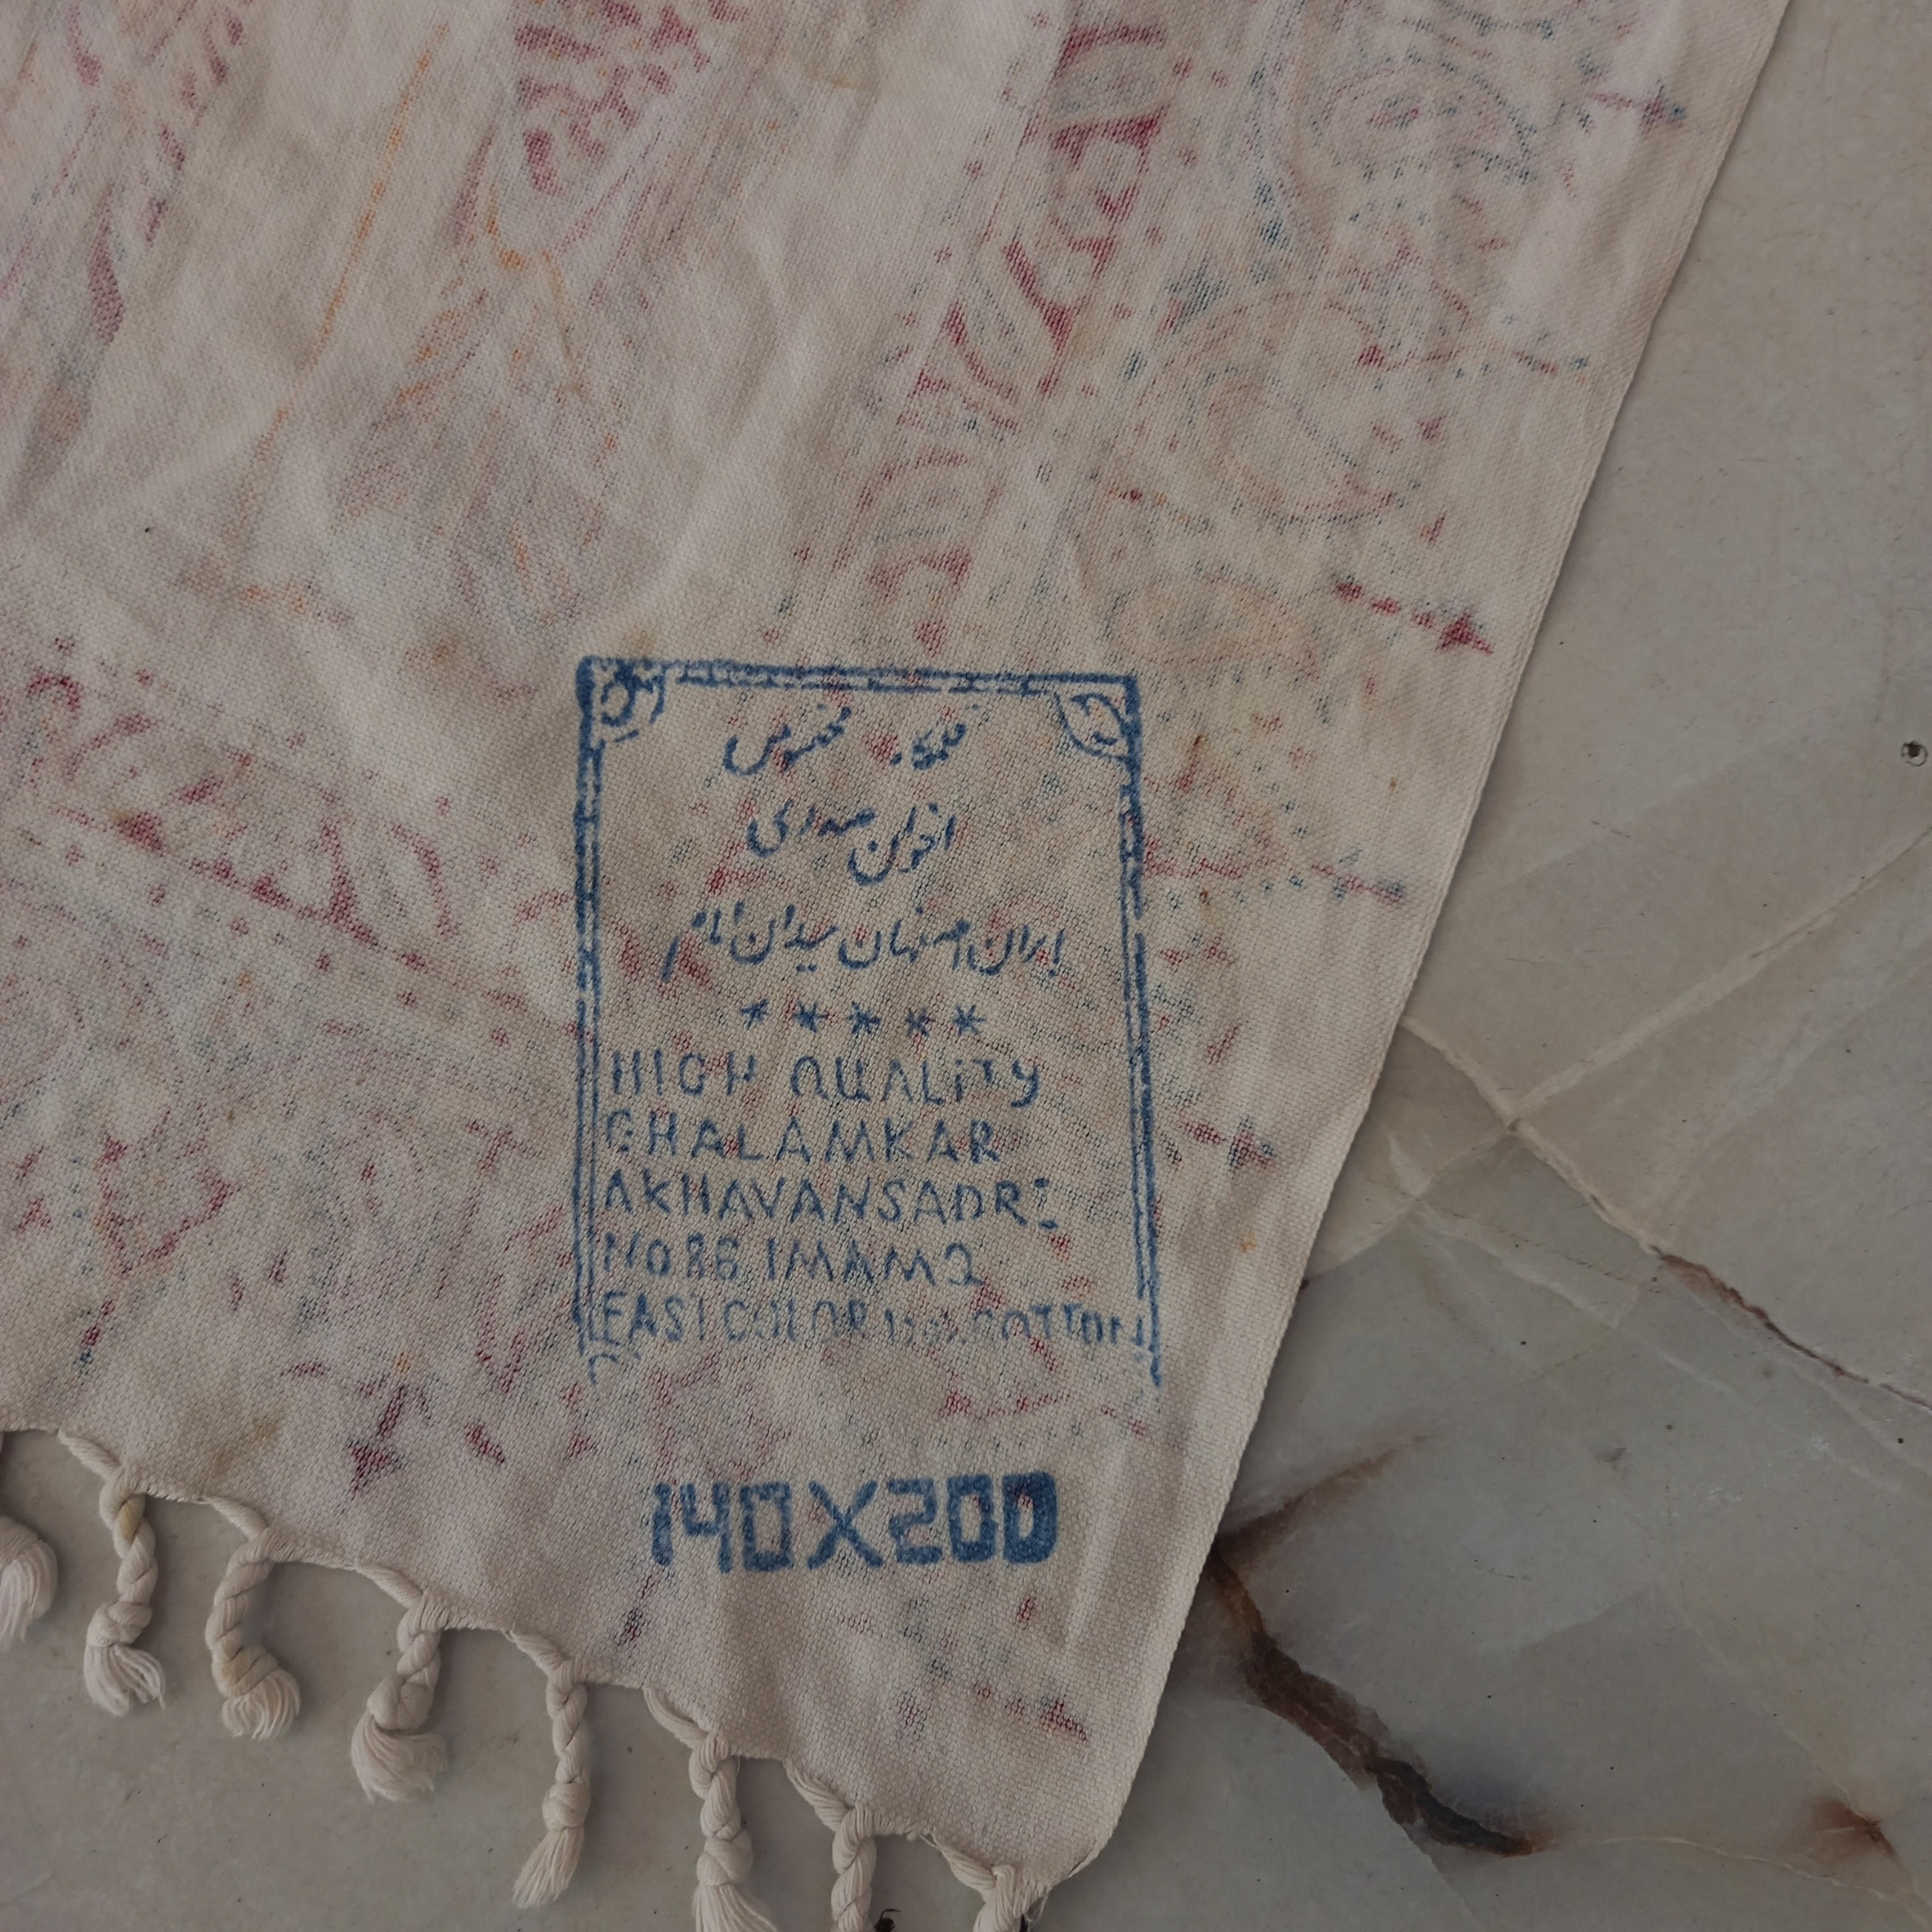 قلمکار مخصوص
اخوان صدری
ایران اصفهان میدان امام
*****
HIGH QUALiTy
GHALAMKAR
AKHAVANSADRi
NO 86 IMAM 2
FAST COLOR 100% COTTON
140X200